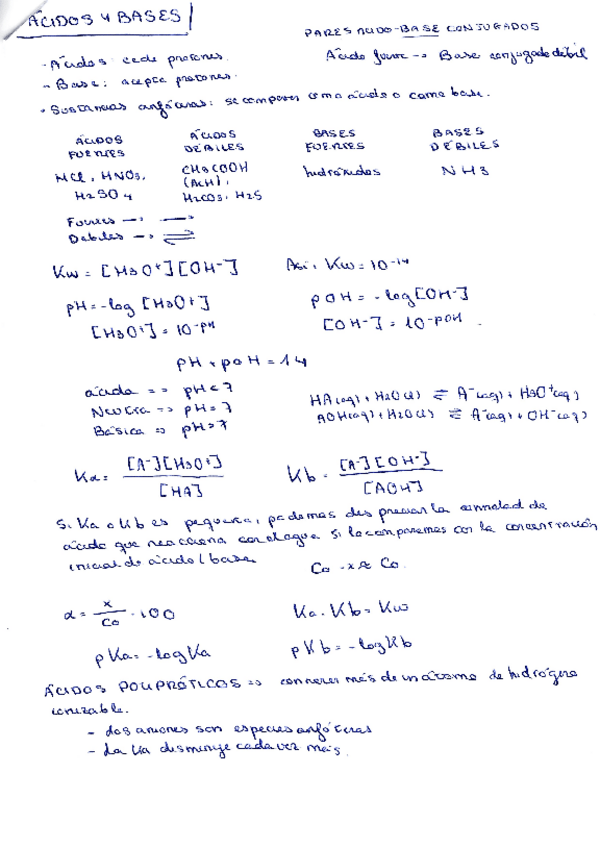 ÁCIDOS Y BASES
PARES ÁCIDO-BASE CONJUGADOS
- Ácidos: cede protones.
Ácido fuerte -> Base conjugada débil
- Base: acepta protones.
- Sustancias anfóteras: se comportan como ácido o como base.
ÁCIDOS FUERTES
ÁCIDOS DÉBILES
BASES FUERTES
BASES DÉBILES
HCl, HNO3, H2SO4
CH3COOH (AcH), H2CO3, H2S
hidróxidos
NH3
Fuertes -> →
Débiles -> ⇌
Kw = [H3O+][OH-]
Así, Kw = 10^-14
pH = -log [H3O+]
pOH = -log [OH-]
[H3O+] = 10^-pH
[OH-] = 10^-pOH
pH + pOH = 14
ácida => pH < 7
Neutra => pH = 7
Básica => pH > 7
HA(aq) + H2O(l) ⇌ A-(aq) + H3O+(aq)
AOH(aq) + H2O(l) ⇌ A-(aq) + OH-(aq)
Ka = [A-][H3O+] / [HA]
Kb = [A-][OH-] / [AOH]
Si Ka o Kb es pequeña, podemos despreciar la cantidad de
ácido que reacciona con el agua si lo comparamos con la concentración
inicial de ácido/base
Co - x ≈ Co.
α = x / Co · 100
Ka · Kb = Kw
pKa = -log Ka
pKb = -log Kb
ÁCIDOS POLIPRÓTICOS => contienen más de un átomo de hidrógeno
ionizable.
- Los aniones son especies anfóteras
- La Ka disminuye cada vez más.